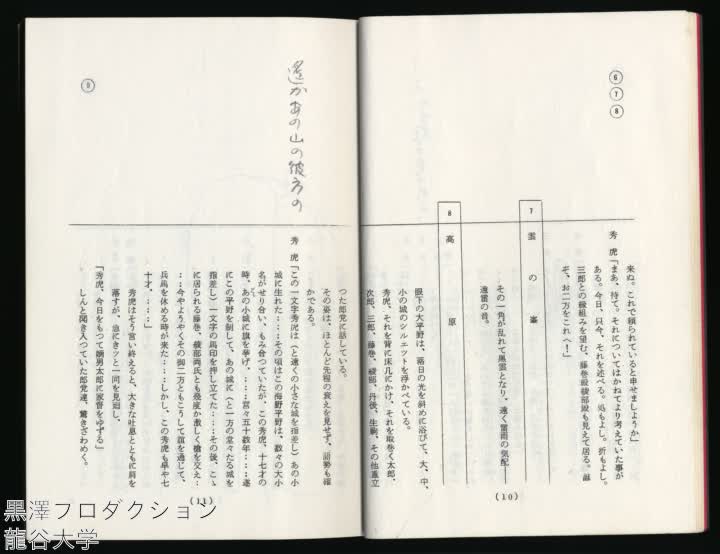 ⑥
⑦
⑧
来ぬ。これで頼られていると申せましようか」
秀虎「まあ、待て。それについてはかねてより考えていた事が
ある。今日、只今、それを述べる。処もよし。折もよし。
三郎との縁組みを望む、藤巻殿綾部殿も見えて居る。誰
ぞ、お二方をこれへ!」
7 雲の峯
その一角が乱れて風雲となり、遠く雷雨の気配――
遠雷の音。
8 高原
眼下の大平野は、落日の光を斜めに浴びて、大、中、
小の城のシルエットを浮かべている。
秀虎、それを背に床几にかけ、それを取巻く太郎、
次郎、三郎、藤巻、綾部、丹後、生駒、その他並立
(10)
つた郎党に話している。
その姿は、ほとんど先程の衰えを見せず、語勢も確
かである。
秀虎「この一文字秀虎は(と遠くの小さな城を指差し)あの小
城に生れた……その頃はこの海野平野は、数々の大小
名がせり合い、もみ合つていたが、この秀虎、十七才の
時、あの小城に旗を挙げ、……営々五十数年……遂
にこの平野を制して、あの城に(と一方の堂々たる城を
指差し)一文字の馬印を押し立てた……その後、こゝ
に居られる藤巻、綾部両氏とも幾度か激しく槍を交え…
…今やようやくその御二方ともこうして誼を通じて、
兵馬を休める時が来た……しかし、この秀虎も早や七
十才、……」
秀虎はそう言い終えると、大きな吐息とともに肩を
落すが、急にきツと一同を見廻し、
「秀虎、今日をもつて嫡男太郎に家督をゆずる」
しんと聞き入つていた郎党達、驚きざわめく。
遥かあの山の彼方の
⑨
(11)
黒澤プロダクション
龍谷大学